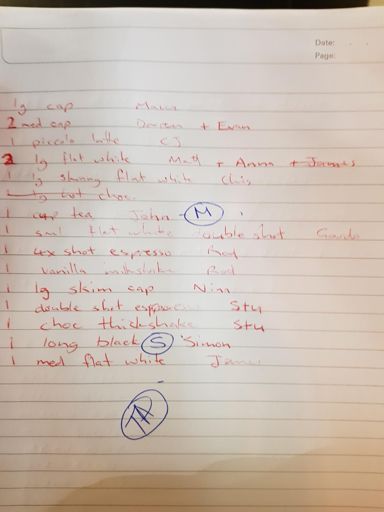 Date:
Page:
lg cap
2 med cap Darren + Evan
1 piccolo latte CJ
lg flat white Matt + Anna + James
1 lg strong flat white Chis
1 cup tea John - M
1 sml flat white double shot
1 4x shot espresso Rod
1 vanilla milkshake Rod
1 lg skim cap
1 double shot espresso Stu
1 choc thickshake Stu
1 long black S Simon
1 med flat white
TA